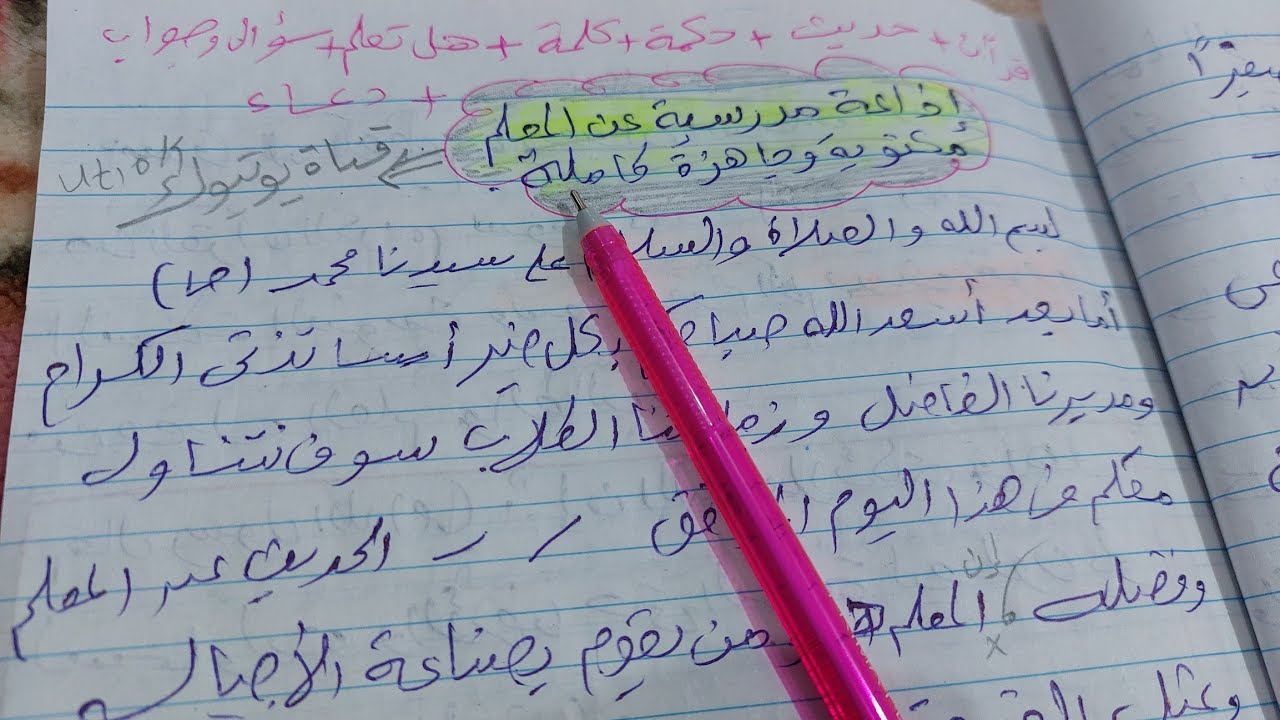 قرآن + حديث + حكمة + كلمة + هل تعلم + سؤال وجواب
+ دعاء
إذاعة مدرسية عن المعلم
مكتوبة وجاهزة كاملة !
قناة يوتيوب
بسم الله والصلاة والسلام على سيدنا محمد (ص)
أما بعد أسعد الله صباحكم بكل خير أساتذتي الكرام
ومديرنا الفاضل وزملائنا الطلاب سوف نتناول
معكم في هذا اليوم الموافق / / الحديث عن المعلم
وفضله المعلم هو من يقوم بصناعة الأجيال